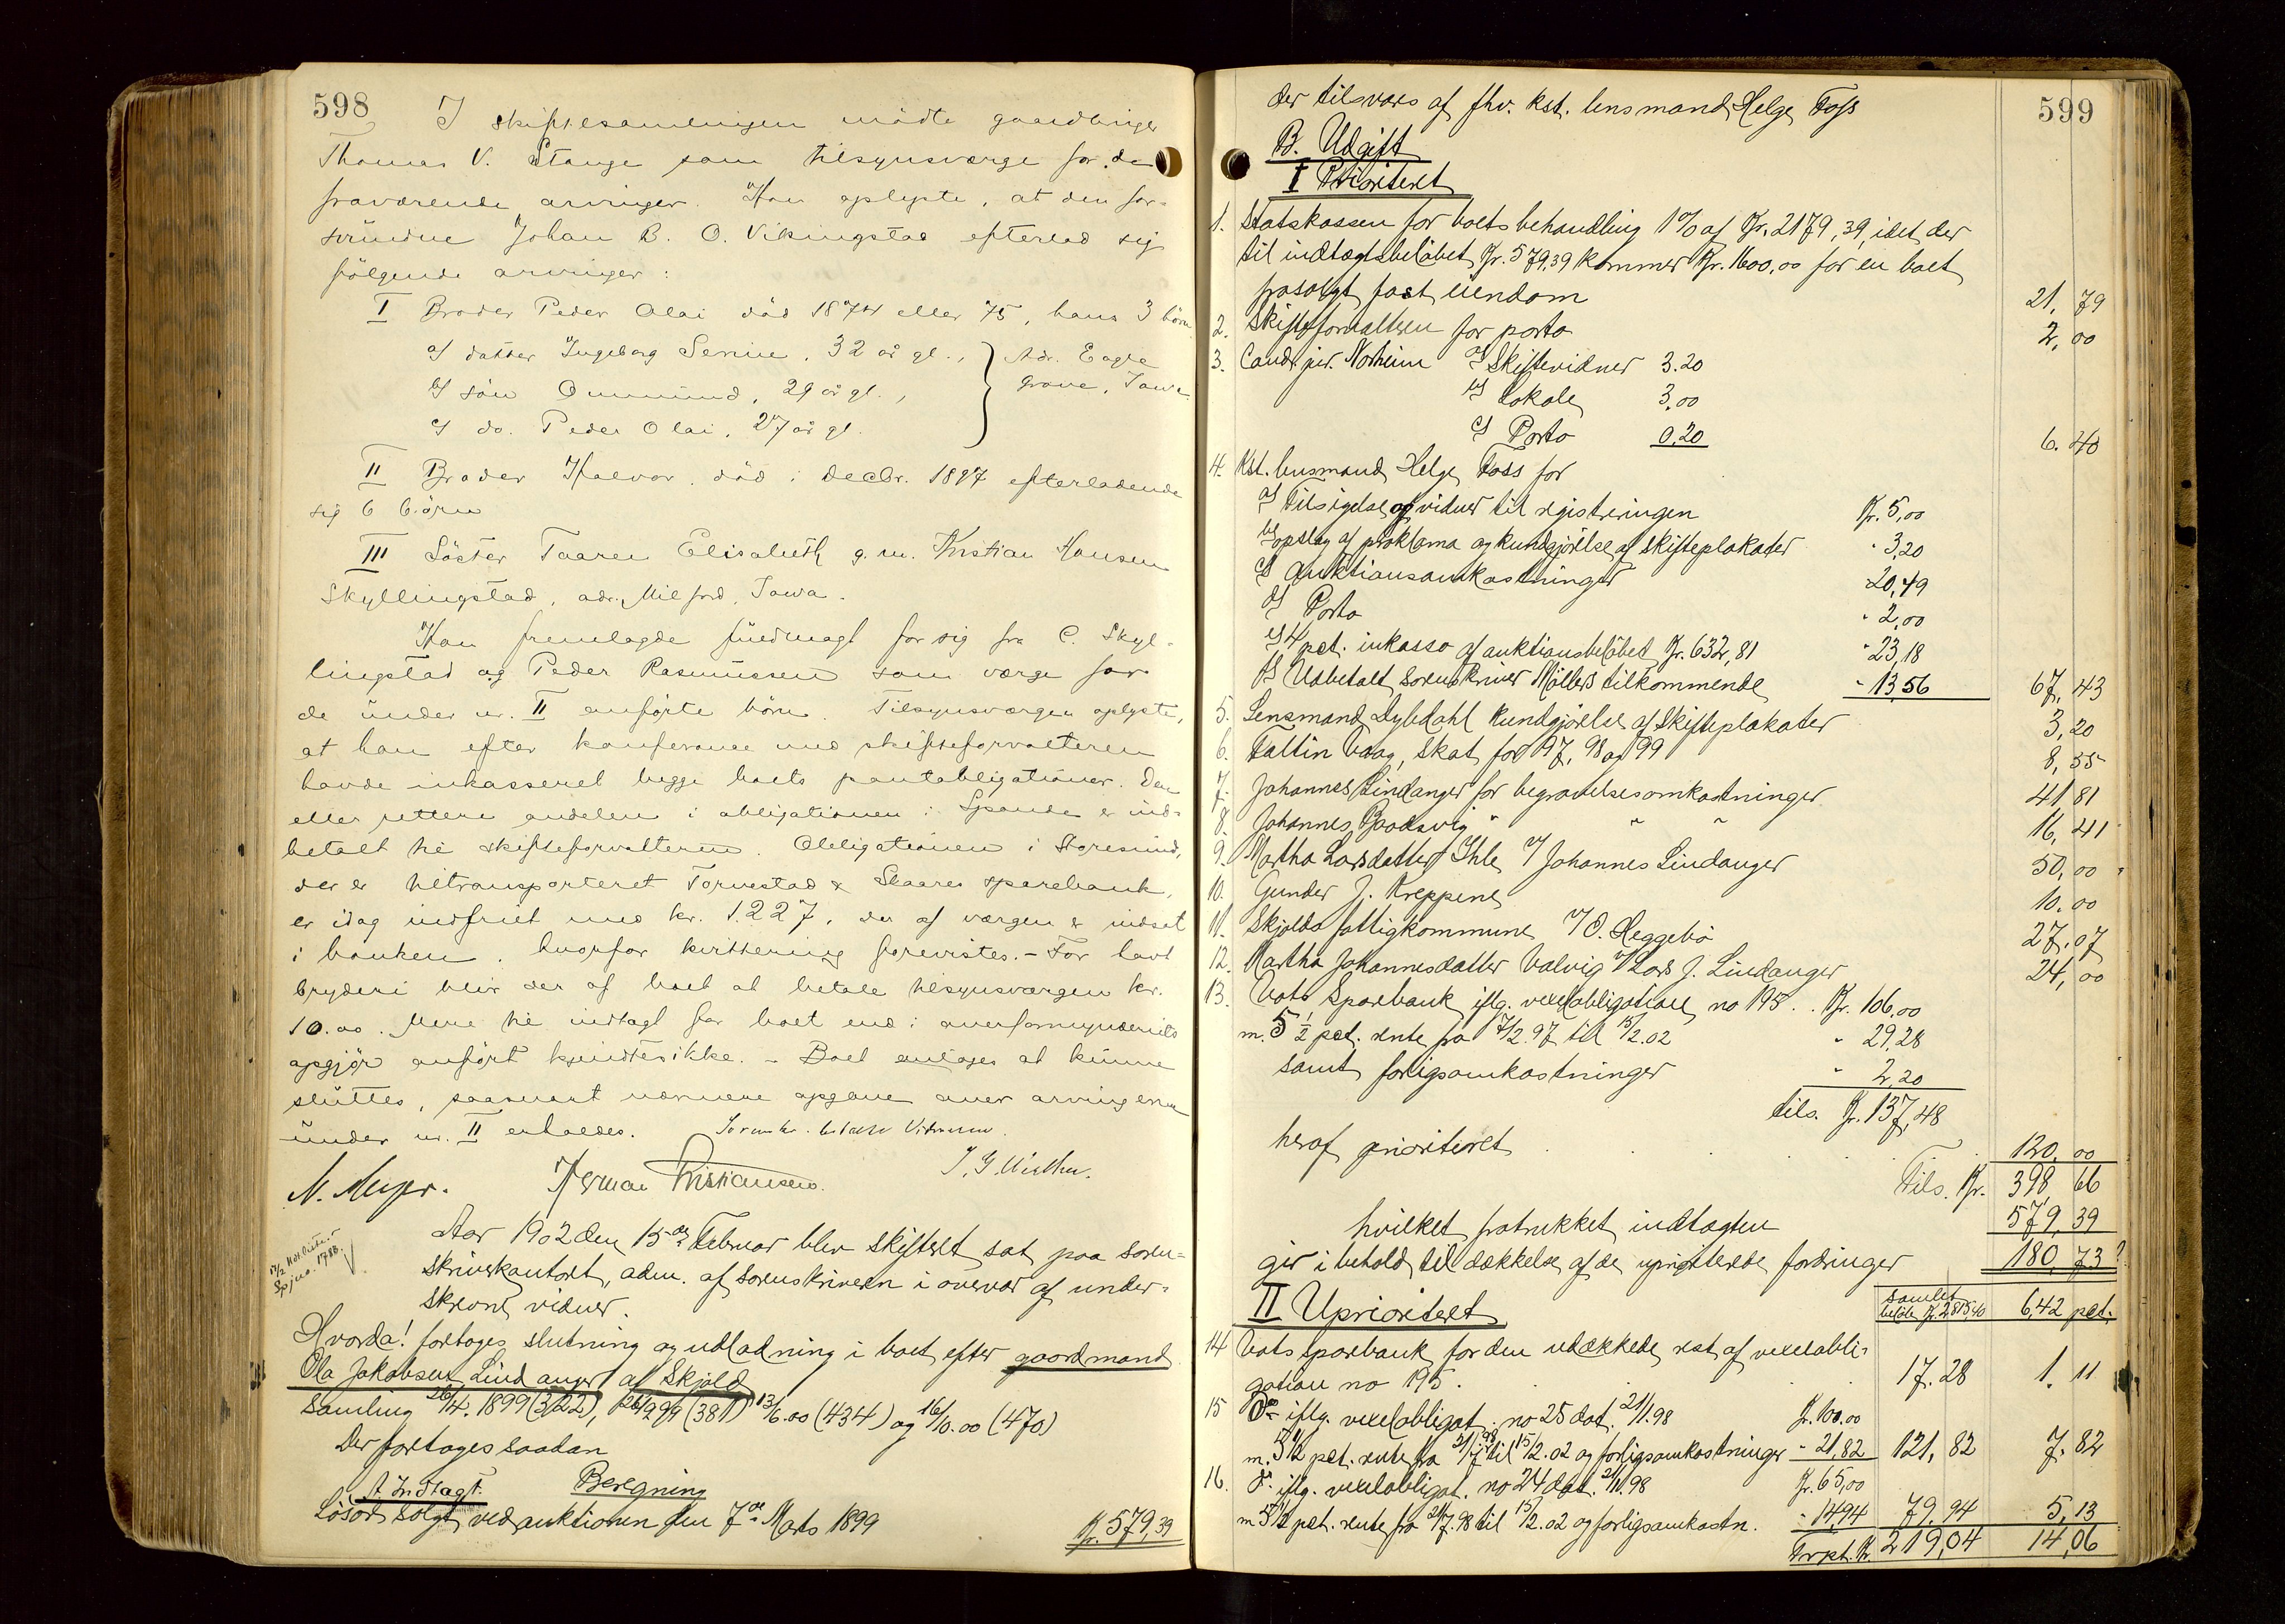 598
I skiftesamlingen mødte gaardbruger
Thomas V. Stange som tilsynsværge for de
fraværende arvinger. Han oplyste, at den for-
svundne Johan B. O. Vikingstad efterlod sig
følgende arvinger:
I Broder Peder Olai død 1874 eller 75, hans 3 børn
a/ datter Ingeborg Serine, 32 år gl., } Adr. Eagle
b/ søn Ommund, 29 år gl., Grove, Iowa
c/ do. Peder Olai, 27 år gl.
II Broder Halvor, død i decbr. 1897 efterladende
sig 6 børn
III Søster Taaren Elisabeth g. m. Kristian Hansen
Skyllingstad, adr. Milford, Iowa.
Han fremlagde fuldmagt for sig fra C. Skyl-
lingstad og Peder Rasmussen som værge for
de under nr. II anførte børn. Tilsynsværgen oplyste,
at han efter konferance med skifteforvalteren
havde inkasseret begge boets pantobligationer. Den
eller rettere andelen i obligationen i Spande er ind-
betalt til skifteforvalteren. Obligationen i Storesund,
der er tiltransporteret Torvestad & Skaare sparebank,
er idag indfriet med kr. 1.227, der af værgen er indsat
i banken, hvorfor kvittering forevistes. – For havt
bryderi blir der af boet at betale tilsynsværgen kr.
10.00. Mere til indtægt for boet end i overformynderiets
opgjør anført kjendtes ikke. – Boet antages at kunne
sluttes, saasnart nærmere opgave over arvingerne
under nr. II erholdes.
N. Meyer. Herman Kristiansen.
Aar 1902 den 15de Februar blev skifteret sat paa soren-
skriverkontoret, adm. af sorenskriveren i overvær af under-
skrevne vidner.
Hvorda! foretoges slutning og udlodning i boet efter gaardmand
Ola Jakobsen Lindanger af Skjold
Samling 26/4. 1899 (322), 26/9 99 (381) 13/6.00 (434) og 16/10.00 (470)
Der foretoges saadan
Beregning
A. Indtægt.
Løsøre solgt ved auktionen den 7de Marts 1899 Kr. 579,39
599
der tilsvares af fhv. kst. lensmand Helge Foss
B. Udgift
I Prioriteret
1. Statskassen for boets behandling 1% af Kr. 2179,39, idet der
til indtægtsbeløbet Kr. 579,39 kommer Kr. 1600,00 for en boet
frasolgt fast eiendom 21,79
2. Skifteforvalteren for porto 2,00
3. Cand. jur. Norheim a/ Skiftevidner 3.20
b/ Lokale 3,00
c/ Porto 0.20 6.40
4. Kst. lensmand Helge Foss for
a/ Tilsigelse af vidner til registreringen Kr. 5,00
b/ opslag af proklama og kundgjørelse af skifteplakater " 3,20
c/ Auktionsomkostninger 20,49
d/ Porto " 2,00
e/ 4 pct. inkasso af auktionsbeløbet Kr. 632,81 " 23,18
f/ Udbetalt sorenskriver Møllers tilkommende " 13,56 67,43
5. Lensmand Dybdahl kundgjørelse af skifteplakater 3,20
6. Faltin Vaag, skat for 97, 98 og 99 8,55
7. Johannes Lindanger for begravelsesomkostninger 41,81
8. Johannes Bradsvig " " " 16,41
9. Martha Larsdatter Ihle v/ Johannes Lindanger 50,00
10. Gunder J. Kreppene 10.00
11. Skjolds fattigkommune v/ O. Heggebø 27,07
12. Martha Johannesdatter Valvig v/ Lars J. Lindanger 24,00
13. Vats Sparebank iflg. vexelobligation no 195 .. Kr. 106,00
m. 5 1/2 pct. rente fra 7/2.97 til 15/2.02 " 29,28
samt forligsomkostninger " 2,20
tils. Kr. 137,48
heraf prioriteret 120,00
Tils. Kr. 398 66
hvilket fratrukket indtægten 579,39
gir i behold til dækkelse af de upriori­terede fordringer 180,73?
II Uprioriteret samlet
beløb Kr. 2815,40 6,42 pct.
14 Vats Sparebank for den udækkede rest af vexelobli-
gation no 195 17.28 1.11
15 Do iflg. vexelobligat. no 25 dat. 21/1.98 Kr. 100.00
m. 5 1/2 pct. rente fra 21/7 98 til 15/2.02 og forligsomkostninger " 21,82 121,82 7.82
16. Do iflg. vexelobligat. no 24 dat. 21/1.98 Kr. 65,00
m 5 1/2 pct. rente fra 21/7.98 til 15/2.02 og forligsomkostn. " 14,94 79,94 5,13
Trspt. Kr. 219,04 14,06